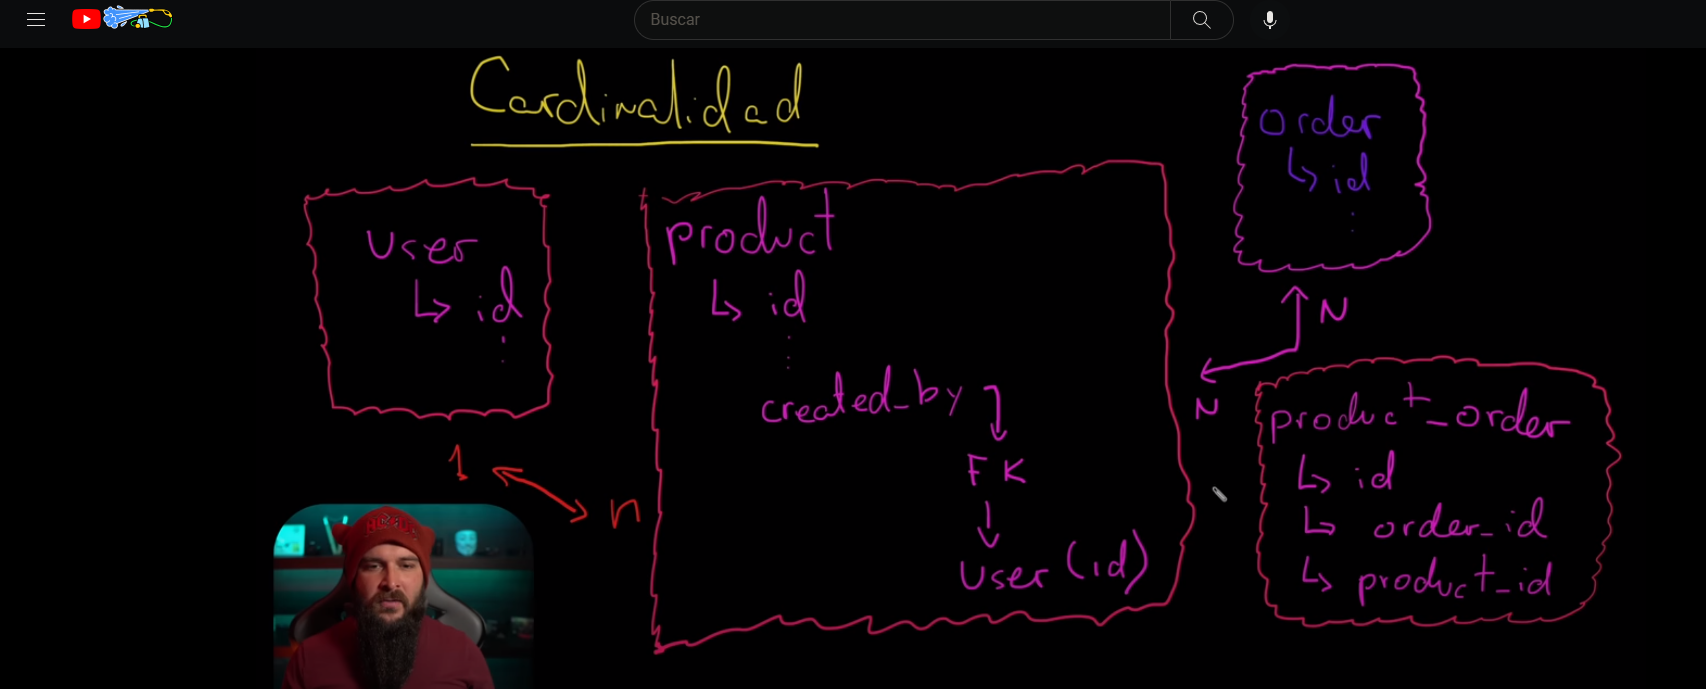 Buscar
Cardinalidad
user
↳ id
product
↳ id
created_by
FK
user (id)
1
n
order
↳ id
N
N
product_order
↳ id
↳ order_id
↳ product_id